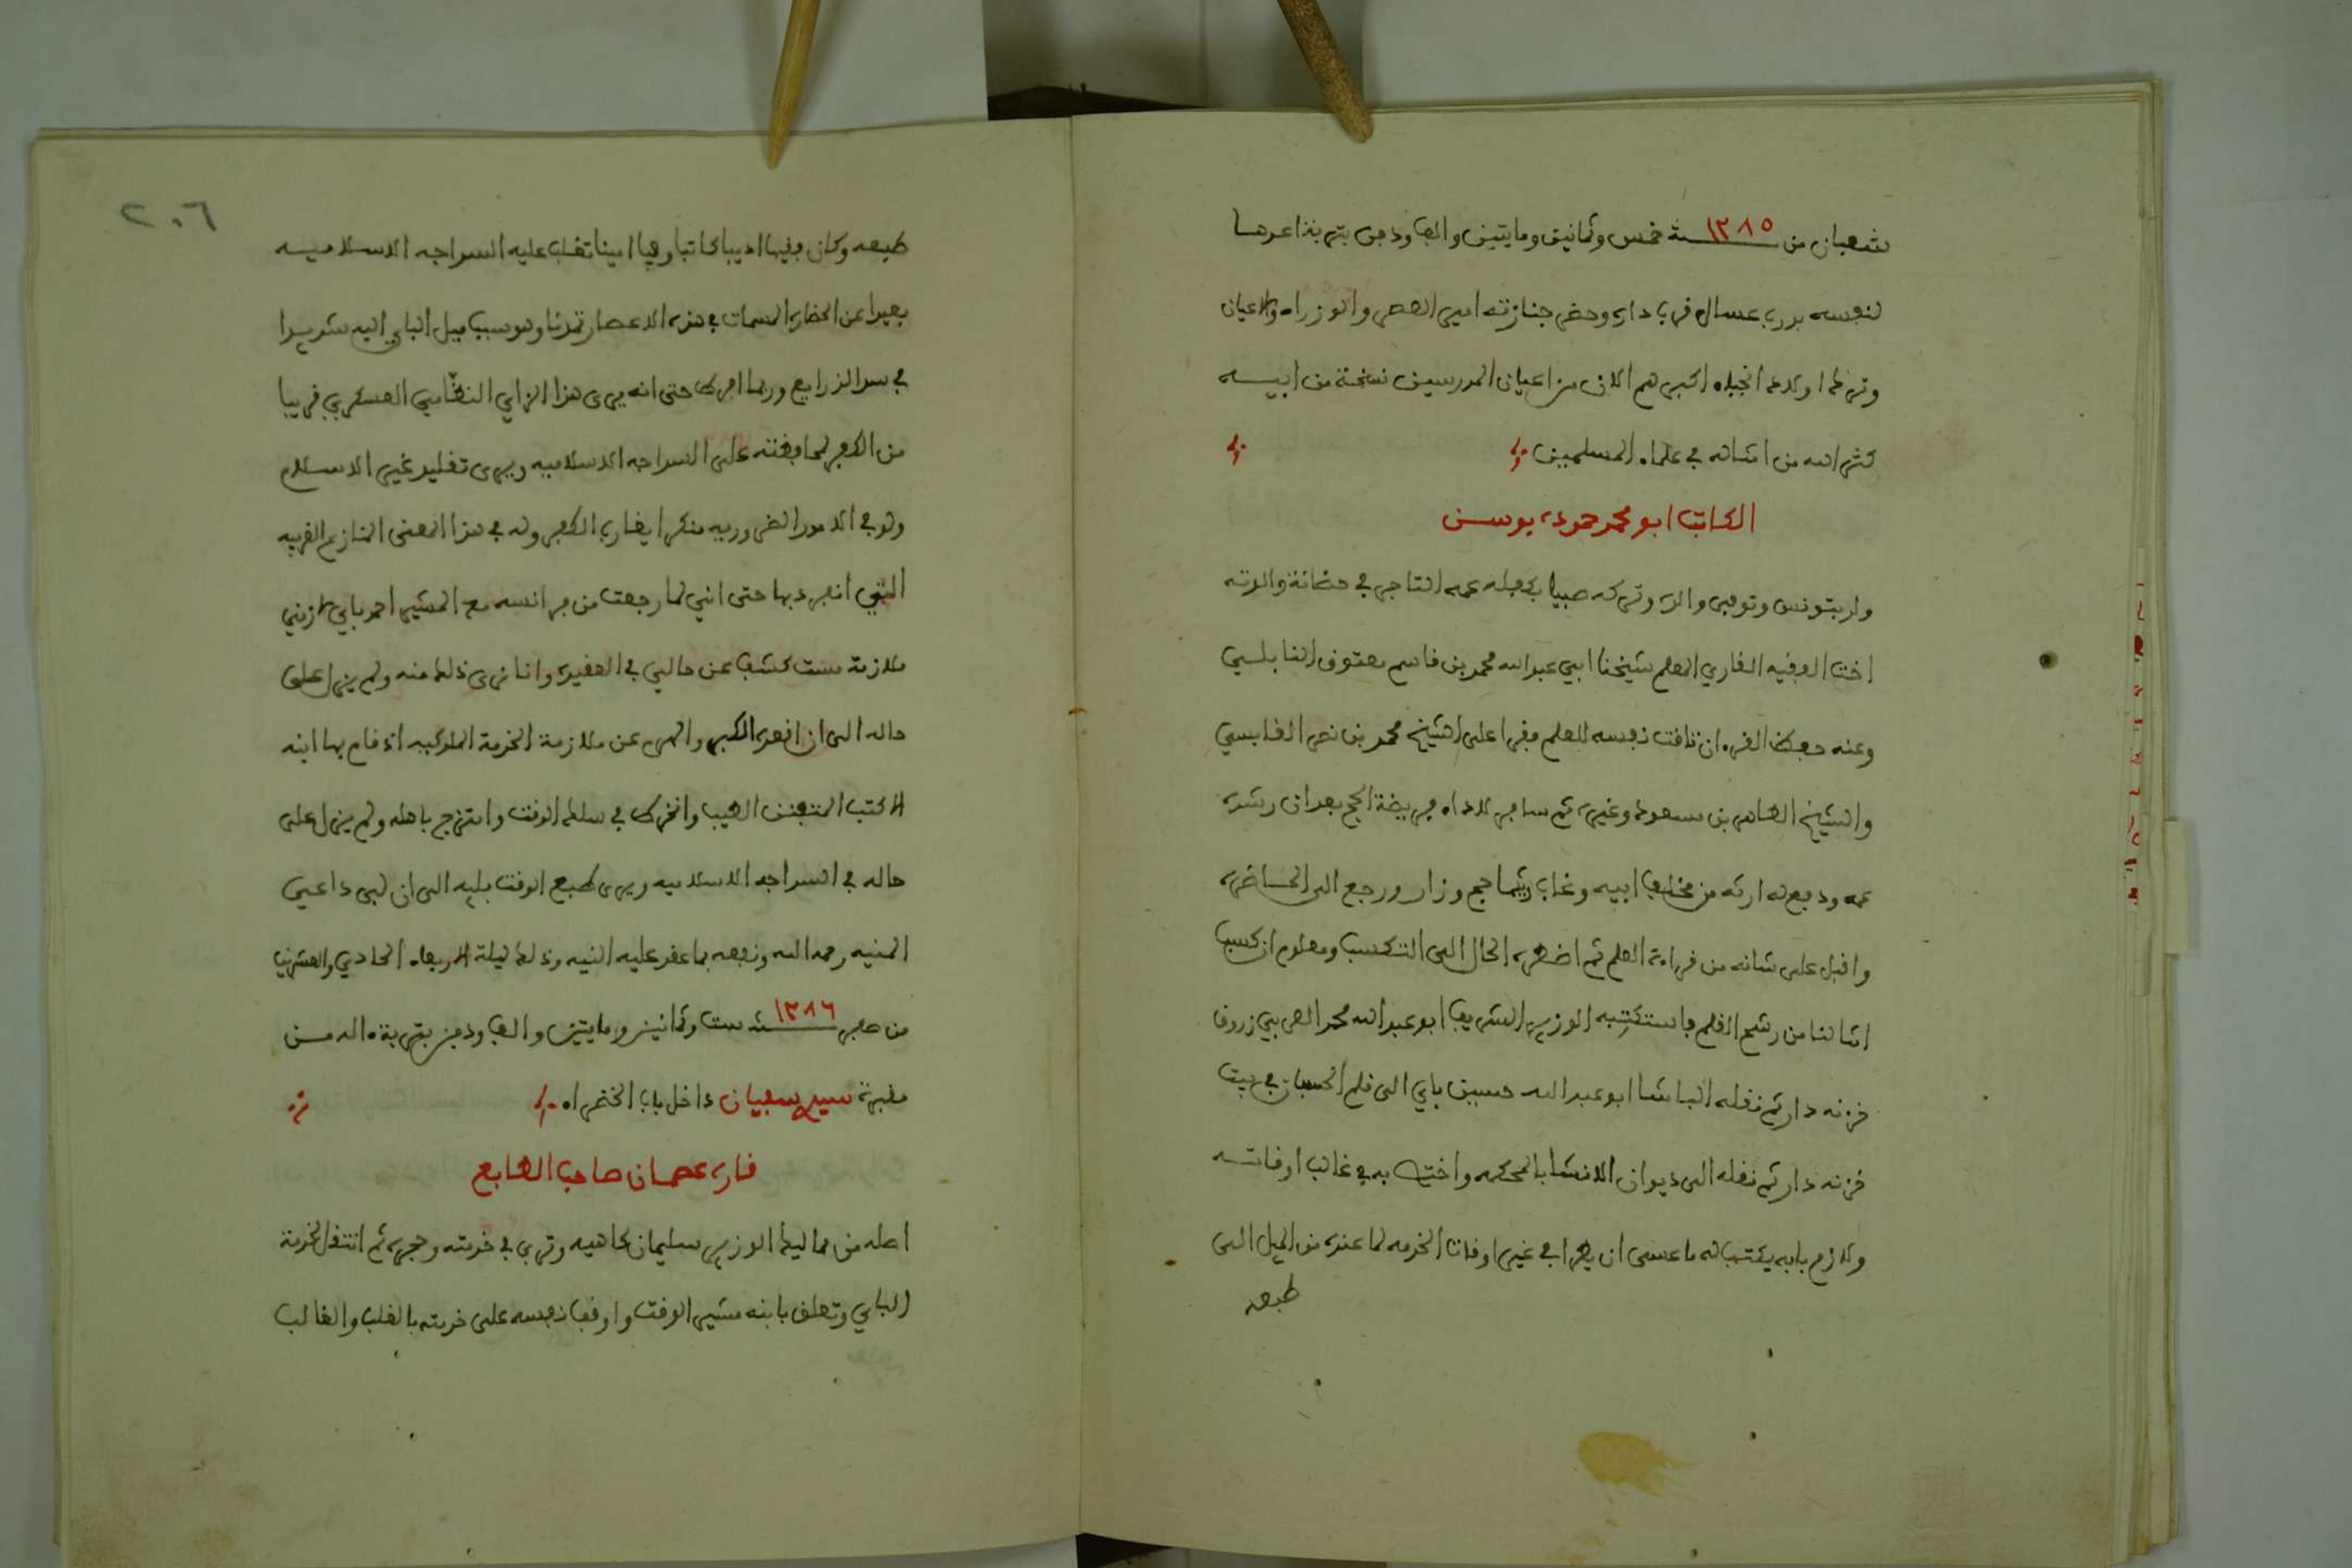 شعبان من سنة ١٢٨٥ خمس وثمانين ومايتين والف ودفن بتربة اعدها
لنفسه بدرب عسال قرب داره وحضر جنازته امير العصر والوزراء والاعيان
وترك اولادا نجباء اكبرهم الان من اعيان المدرسين نسخة من ابيه
كثر الله من امثاله في علماء المسلمين
الكاتب ابو محمد حموده بوسن
ولد بتونس وتوفي والده وتركه صبيا بكفله عمه التاجر في حضانة والدته
اخت الفقيه القاري المعلم شيخنا ابي عبد الله محمد بن قاسم معتوق النابلسي
وعنه حفظ القرءان تاقت نفسه للعلم فقرا على الشيخ محمد بن نصر القابسي
والشيخ الطاهر بن مسعود وغيره ثم سافر لاداء فريضة الحج بعد ان رشده
عمه ودفع له ارثه من مخلف ابيه وغاب ريثما حج وزار ورجع الى الحاضره
واقبل على شانه من قراءة العلم ثم اضطره الحال الى التكسب ومعلوم ان كسب
امثالنا من رشح القلم فاستكتبه الوزير الشريف ابو عبد الله محمد العربي زروق
خزنه دار ثم نقله الباشا ابو عبد الله حسين باي الى قلم الحسبان في بيت
خزنه دار ثم نقله الى ديوان الانشا بالمحكمه واختص به في غالب اوقاته
ولازم بابه يكتب له ما عسى ان يطرا في غير اوقات الخدمه لما عنده من الميل الى
طبعه
٢٠٦
طبعه وكان فقيها اديبا كاتبا وفيا امينا تغلب عليه السذاجه الاسلاميه
بعيدا عن الحضاره المسمات في هذه الاعصار تمدنا وهو سبب ميل الباي اليه شديدا
في سد الذرايع وربما افرط حتى انه يرى هذا الزي النظامي العسكري قريبا
من الكفر لمحافظته على السذاجه الاسلاميه ويرى تقليد غير الاسلام
ولو في الامور الضروريه منكرا يقارب الكفر وله في هذا المعنى المنازع الغريبه
التي انفرد بها حتى انني لما رجعت من فرانسه مع المشير احمد باي لازمني
ملازمة مستكشف عن حالي في العقيده وانا نرى ذلك منه ولم يزل على
حاله الى ان اقعده الكبر والهرم عن ملازمة الخدمة الملوكيه اذ قام بها ابنه
الاكتب المتفنن الطيب وانخرط في سلك الوقت وامتزج باهله ولم يزل على
حاله في السذاجه الاسلاميه ويرى طبع الوقت بليه الى ان لبى داعي
المنيه رحمه الله ونفعه بما عقد عليه النيه وذلك ليلة الاربعاء الحادي والعشرين
من صفر سنة ١٢٨٦ ست وثمانين ومايتين والف ودفن بتربة ءاله من
مقبرة سيدي سفيان داخل باب الخضراء
قاره عصمان صاحب الطابع
اصله من مماليك الوزير سليمان كاهيه وتربى في خدمته وحجره ثم انتقل لخدمة
الباي وتعلق بابنه مشير الوقت واوقف نفسه على خدمته بالقلب والقالب